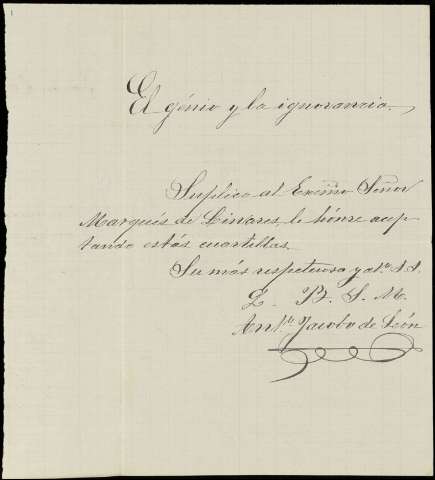 El génio y la ignorancia.
Suplico al Excmo Señor
Marqués de Linares, le hónre acep
tando estás cuartillas.
Su más respetuoso y atº. S.S.
Q. B. S. M.
Antº. Jacobo de León